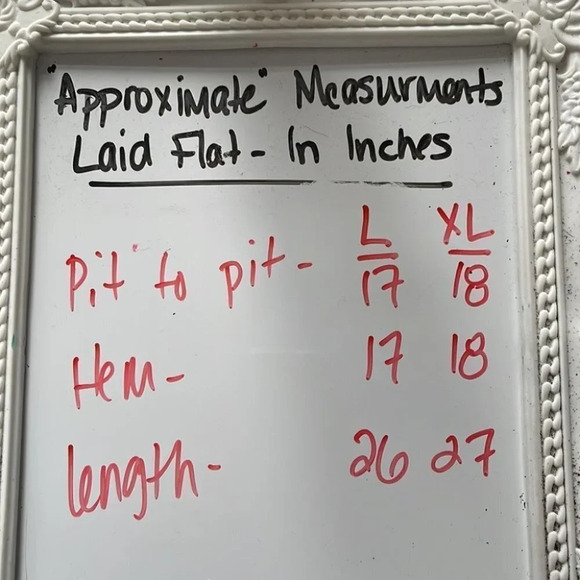 "Approximate" Measurments
Laid Flat - In Inches
L XL
Pit to pit - 17 18
Hem - 17 18
length - 26 27